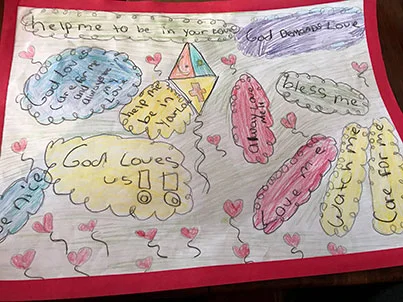 help me to be in your love
God Demands Love
God Loves
Care for me
and always
Love
help me
be in
always care
bless me
God Loves
us!!
Love me
Watch me
Care for me
be nice